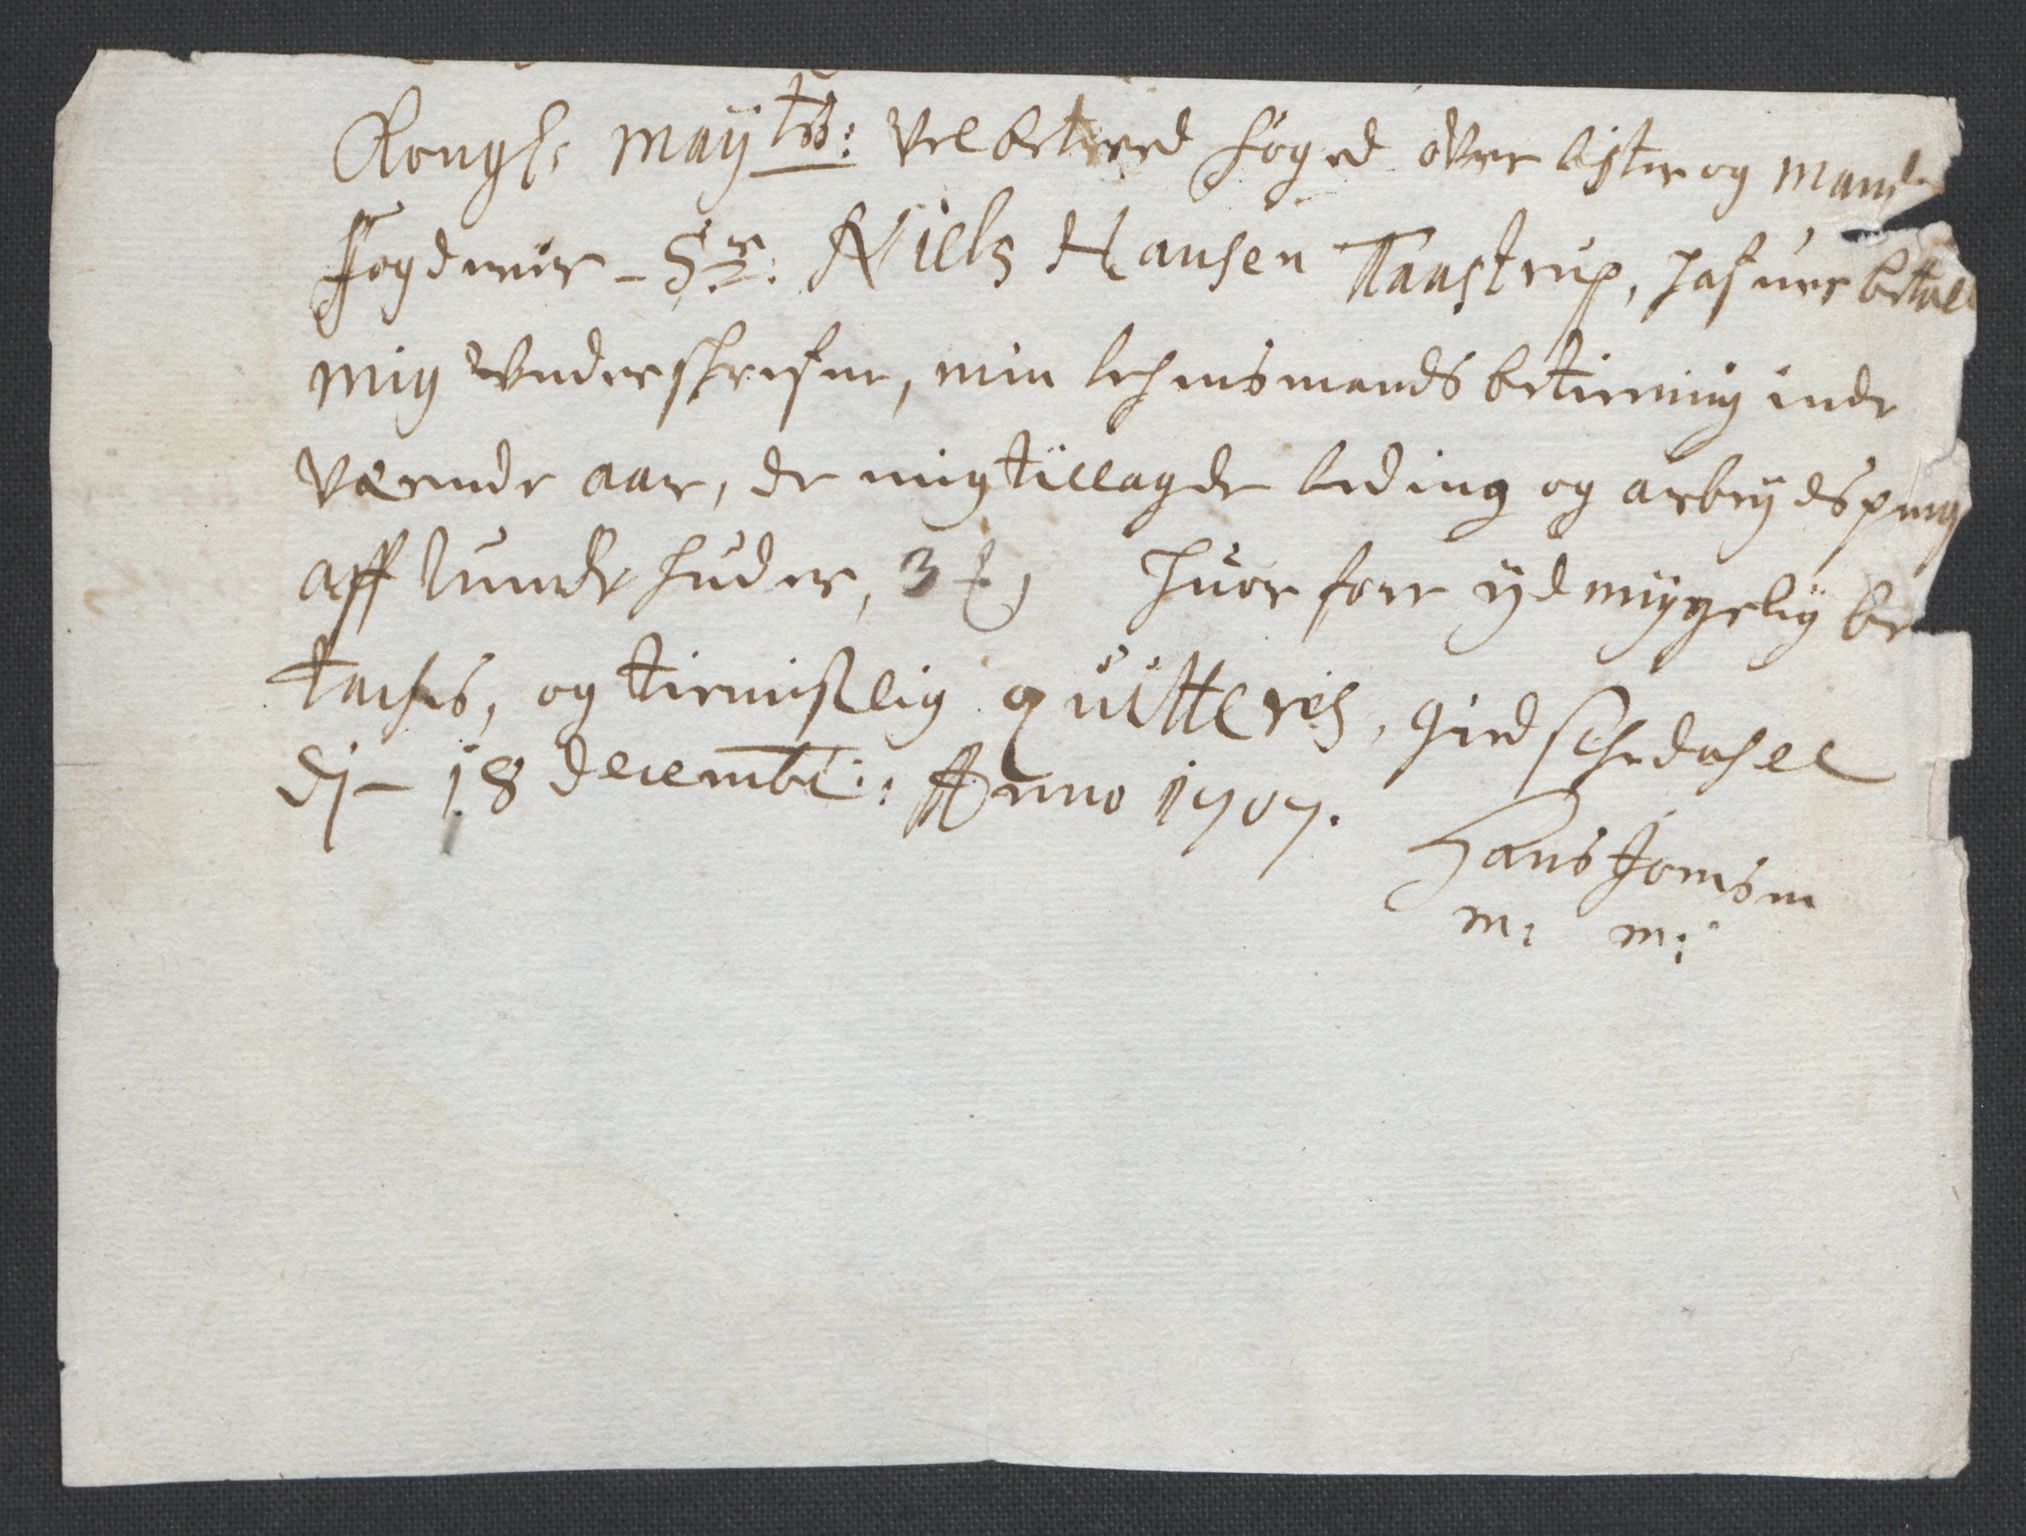 Kongl: Mayts: Velbetroed foged over Lister og Mand
fogderier - Sr: Niels Hansen Taastrup, hafuer betalt
mig Underskrefne, min lehnsmands betienning inde
værende aar, de mig tillagde leding og arbeydspeng
aff Lunde huder, 3 huorforre ydmygelig be
tackes, og tienistlig quitteris,
dj - 18 decembr: Anno 1707.
Hans Jonsen
m: m: